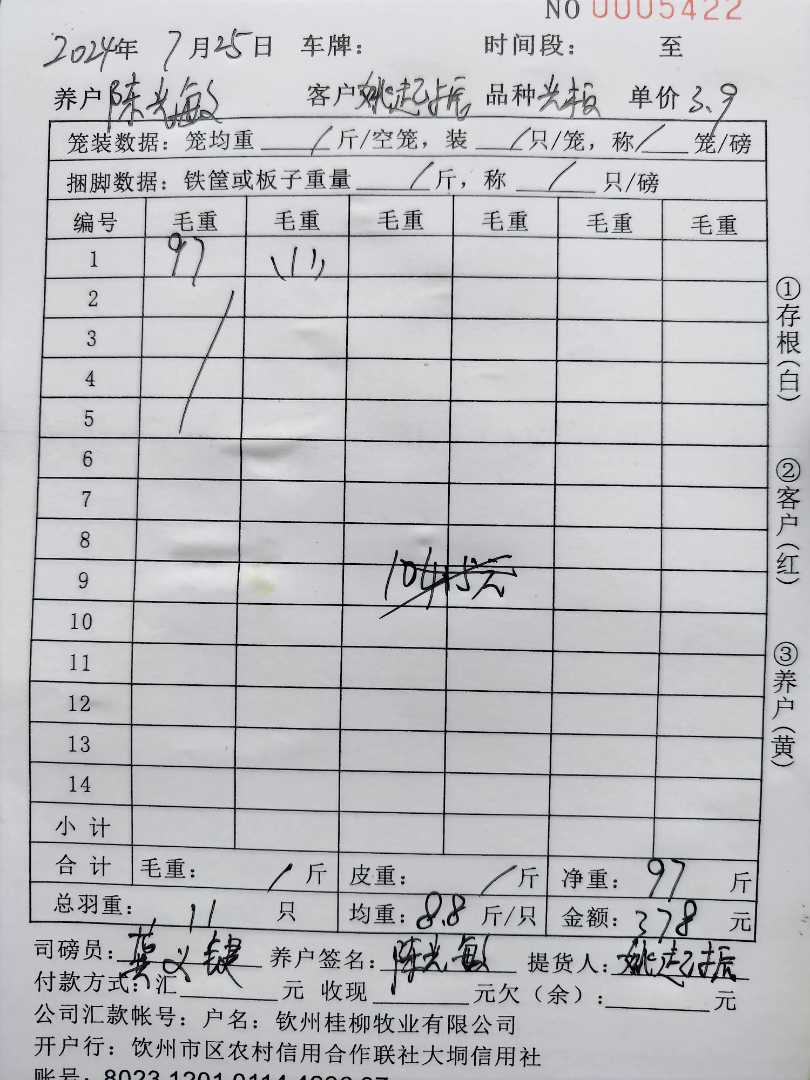 NO 0005422
2024年 7月25日 车牌： 时间段： 至
养户 陈光敏 客户 姚起振 品种 光板 单价 3.9
笼装数据：笼均重 / 斤/空笼，装 / 只/笼，称 / 笼/磅
捆脚数据：铁筐或板子重量 / 斤，称 / 只/磅
编号 毛重 毛重 毛重 毛重 毛重 毛重
1 97 (11)
2
3
4
5
6
7
8
9
10
11
12
13
14
小计
合计 毛重： / 斤 皮重： / 斤 净重： 97 斤
总羽重： 11 只 均重：8.8 斤/只 金额：378 元
司磅员： 义键 养户签名：陈光敏 提货人：姚起振
付款方式：汇 元 收现 元欠（余）： 元
公司汇款帐号：户名：钦州桂柳牧业有限公司
开户行：钦州市区农村信用合作联社大垌信用社
账号：8023 1201 0114
①存根(白)
②客户(红)
③养户(黄)